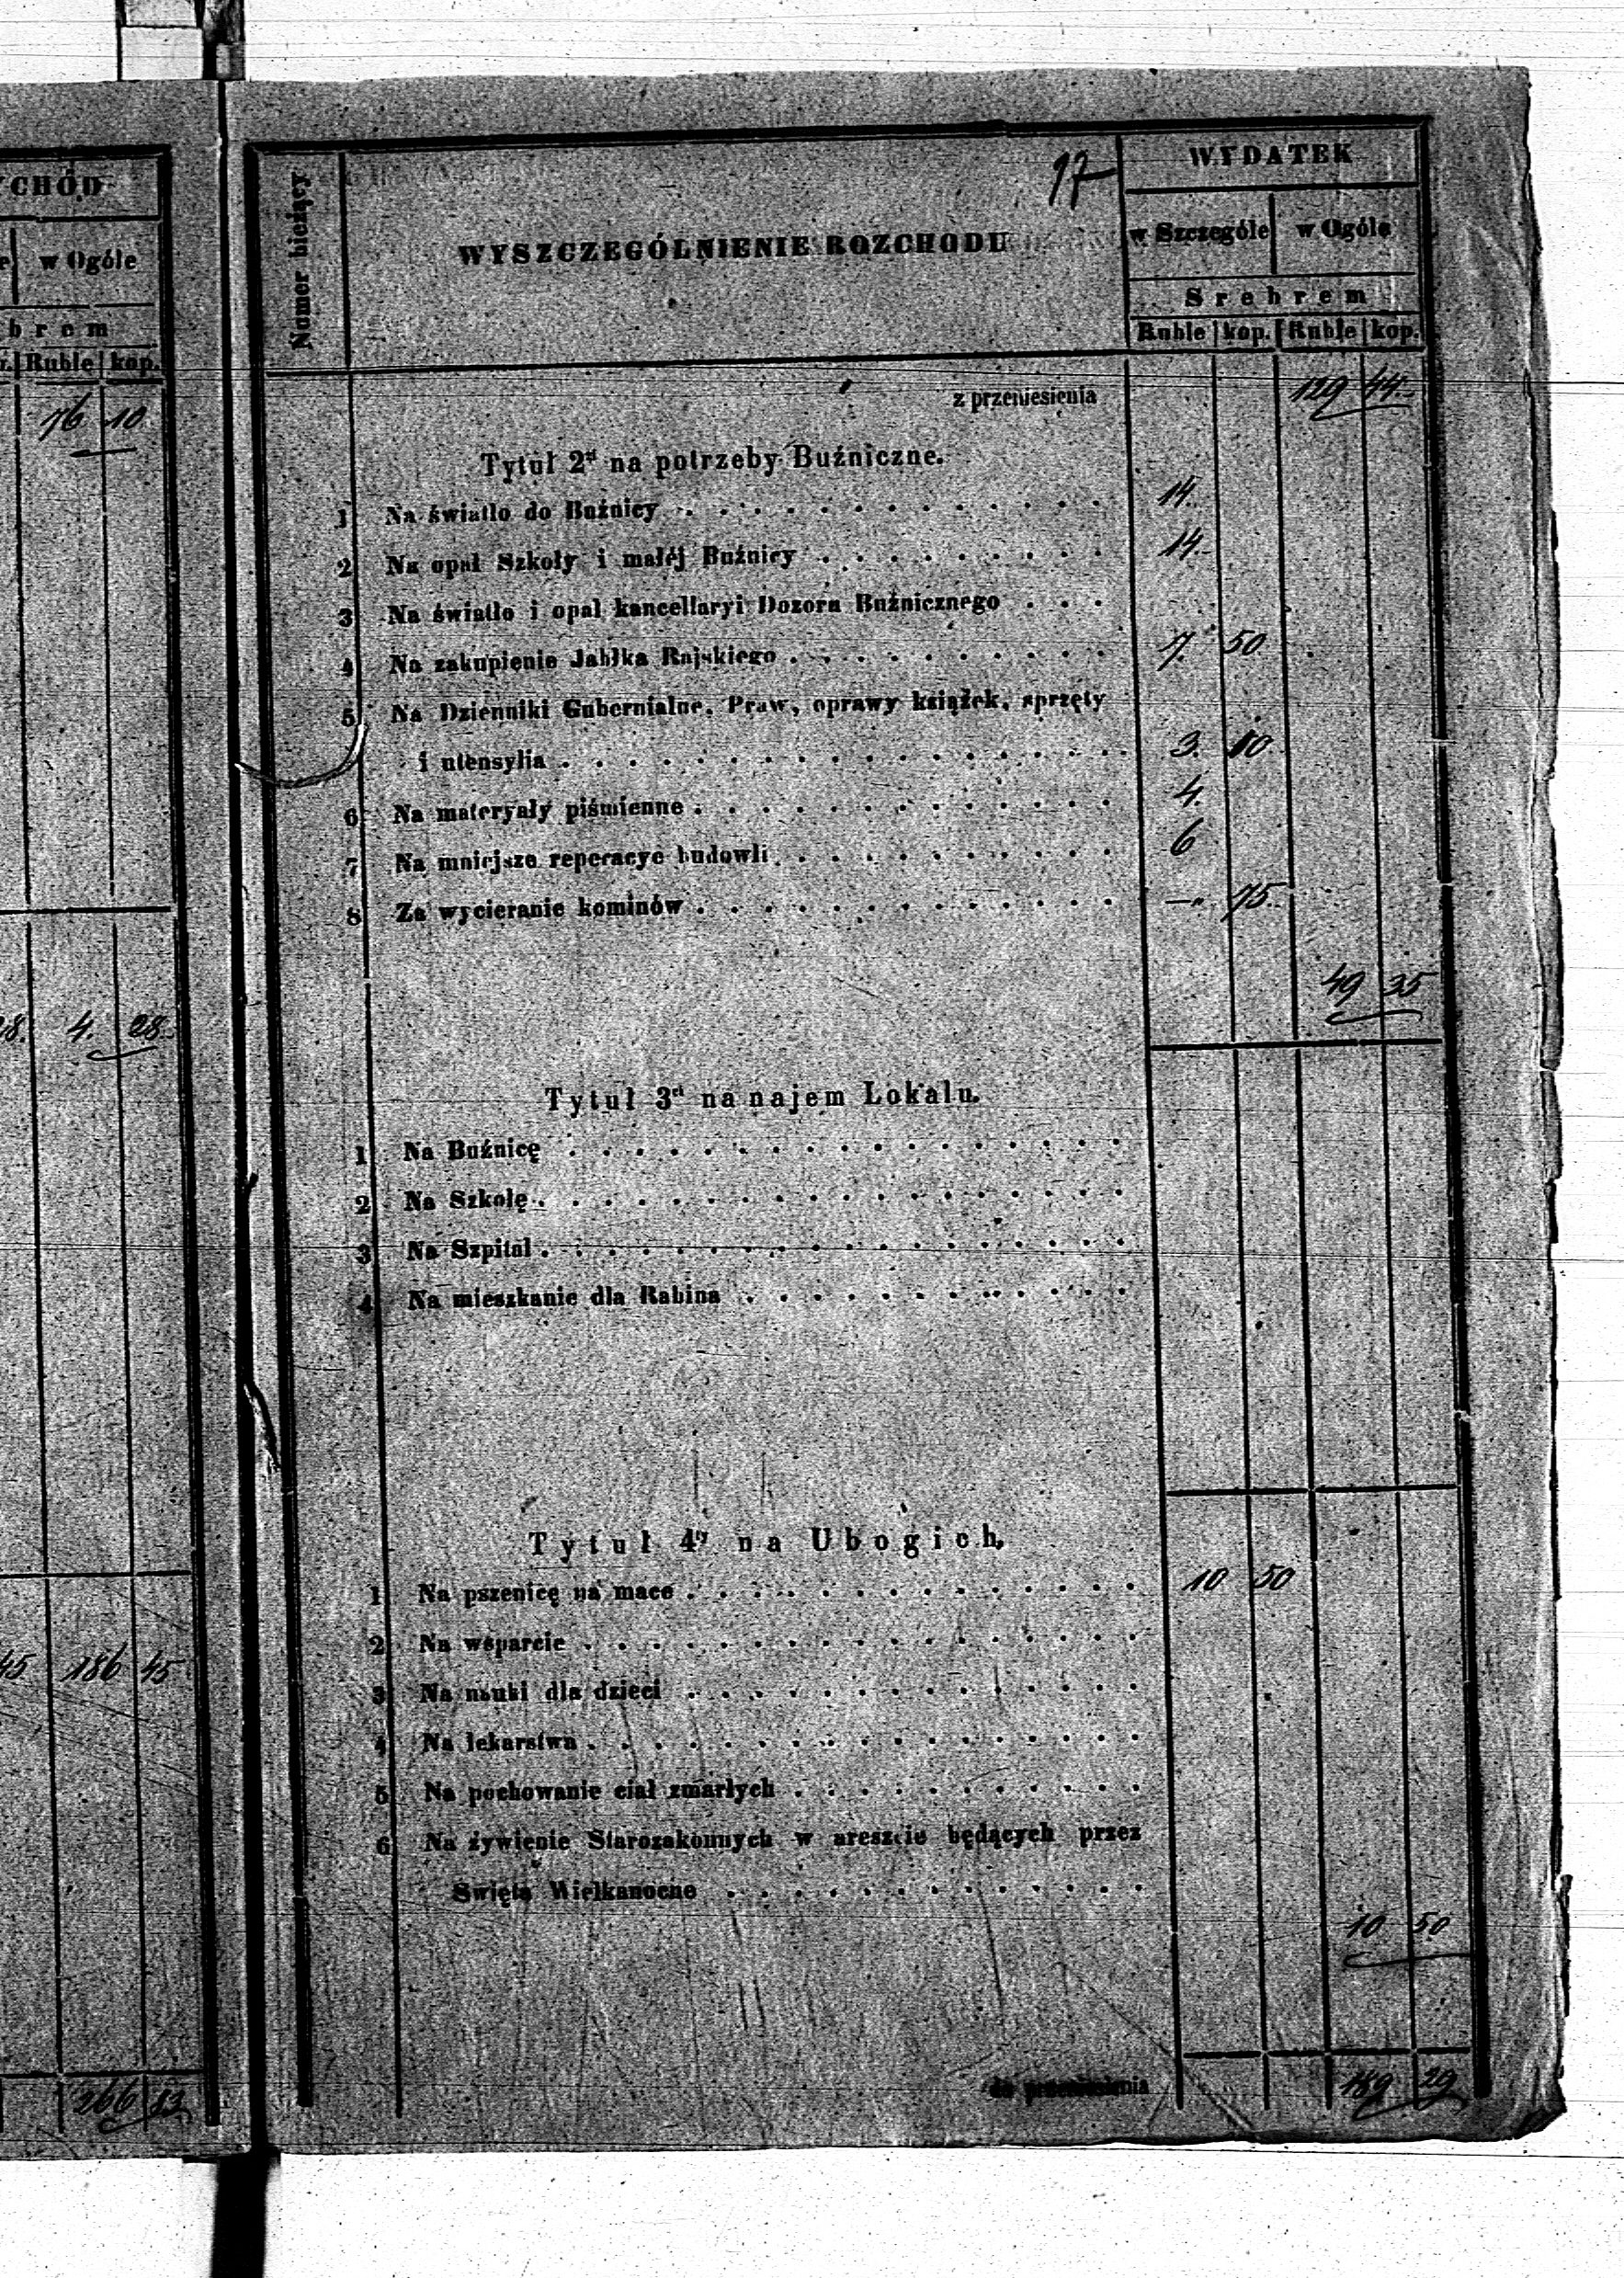 YCHÓD
w Ogóle
brem
Ruble kop.
76 10
28. 4. 28.
45 186 45
266 83
17
Numer bieżący
WYSZCZEGÓLNIENIE ROZCHODU
WYDATEK
w Szczególe w Ogóle
Srebrem
Ruble kop. Ruble kop.
z przeniesienia 129 44.
Tytuł 2gi na potrzeby Buźniczne.
1 Na światło do Buźnicy . . . . . . . . . . . . 14.
2 Na opał Szkoły i małéj Buźnicy . . . . . . . . . 14.
3 Na światło i opał kancellaryi Dozoru Buźnicznego . . .
4 Na zakupienie Jabłka Rajskiego . . . . . . . . . . 7. 50
5 Na Dzienniki Gubernialne, Praw, oprawy książek, sprzęty
i utensylia . . . . . . . . . . . . . . . . . 3. 10
6 Na materyały piśmienne . . . . . . . . . . . . . 4.
7 Na mniejsze reperacye budowli . . . . . . . . . . 6
8 Za wycieranie kominów . . . . . . . . . . . . . —. 75.
49 35
Tytuł 3ci na najem Lokalu.
1 Na Buźnicę . . . . . . . . . . . . . . . . .
2 Na Szkołę . . . . . . . . . . . . . . . . . .
3 Na Szpital . . . . . . . . . . . . . . . . . .
4 Na mieszkanie dla Rabina . . . . . . . . . . . .
Tytuł 4ty na Ubogich.
1 Na pszenicę na mace . . . . . . . . . . . . . . 10 50
2 Na wsparcie . . . . . . . . . . . . . . . . .
3 Na nauki dla dzieci . . . . . . . . . . . . . .
4 Na lekarstwa . . . . . . . . . . . . . . . . .
5 Na pochowanie ciał zmarłych . . . . . . . . . . .
6 Na żywienie Starozakonnych w areszcie będących przez
Święta Wielkanocne . . . . . . . . . . . . .
10 50
do przeniesienia 189 29